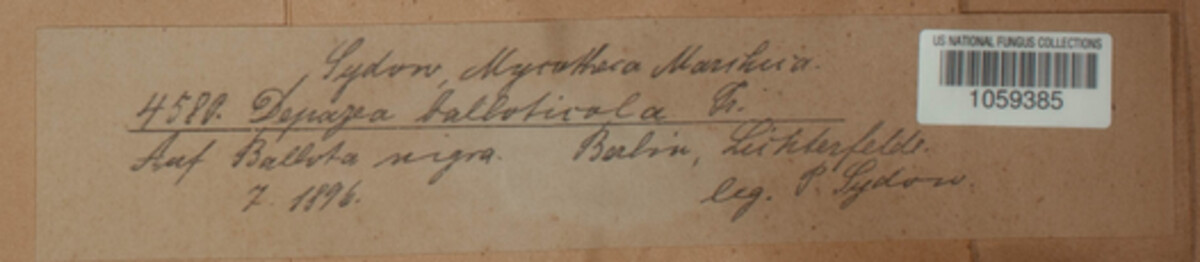 Sydow, Mycotheca Marchica.
4580. Depazea balloticola Fr.
Auf Ballota nigra. Berlin, Lichterfelde.
7. 1896. leg. P. Sydow.
US NATIONAL FUNGUS COLLECTIONS
1059385